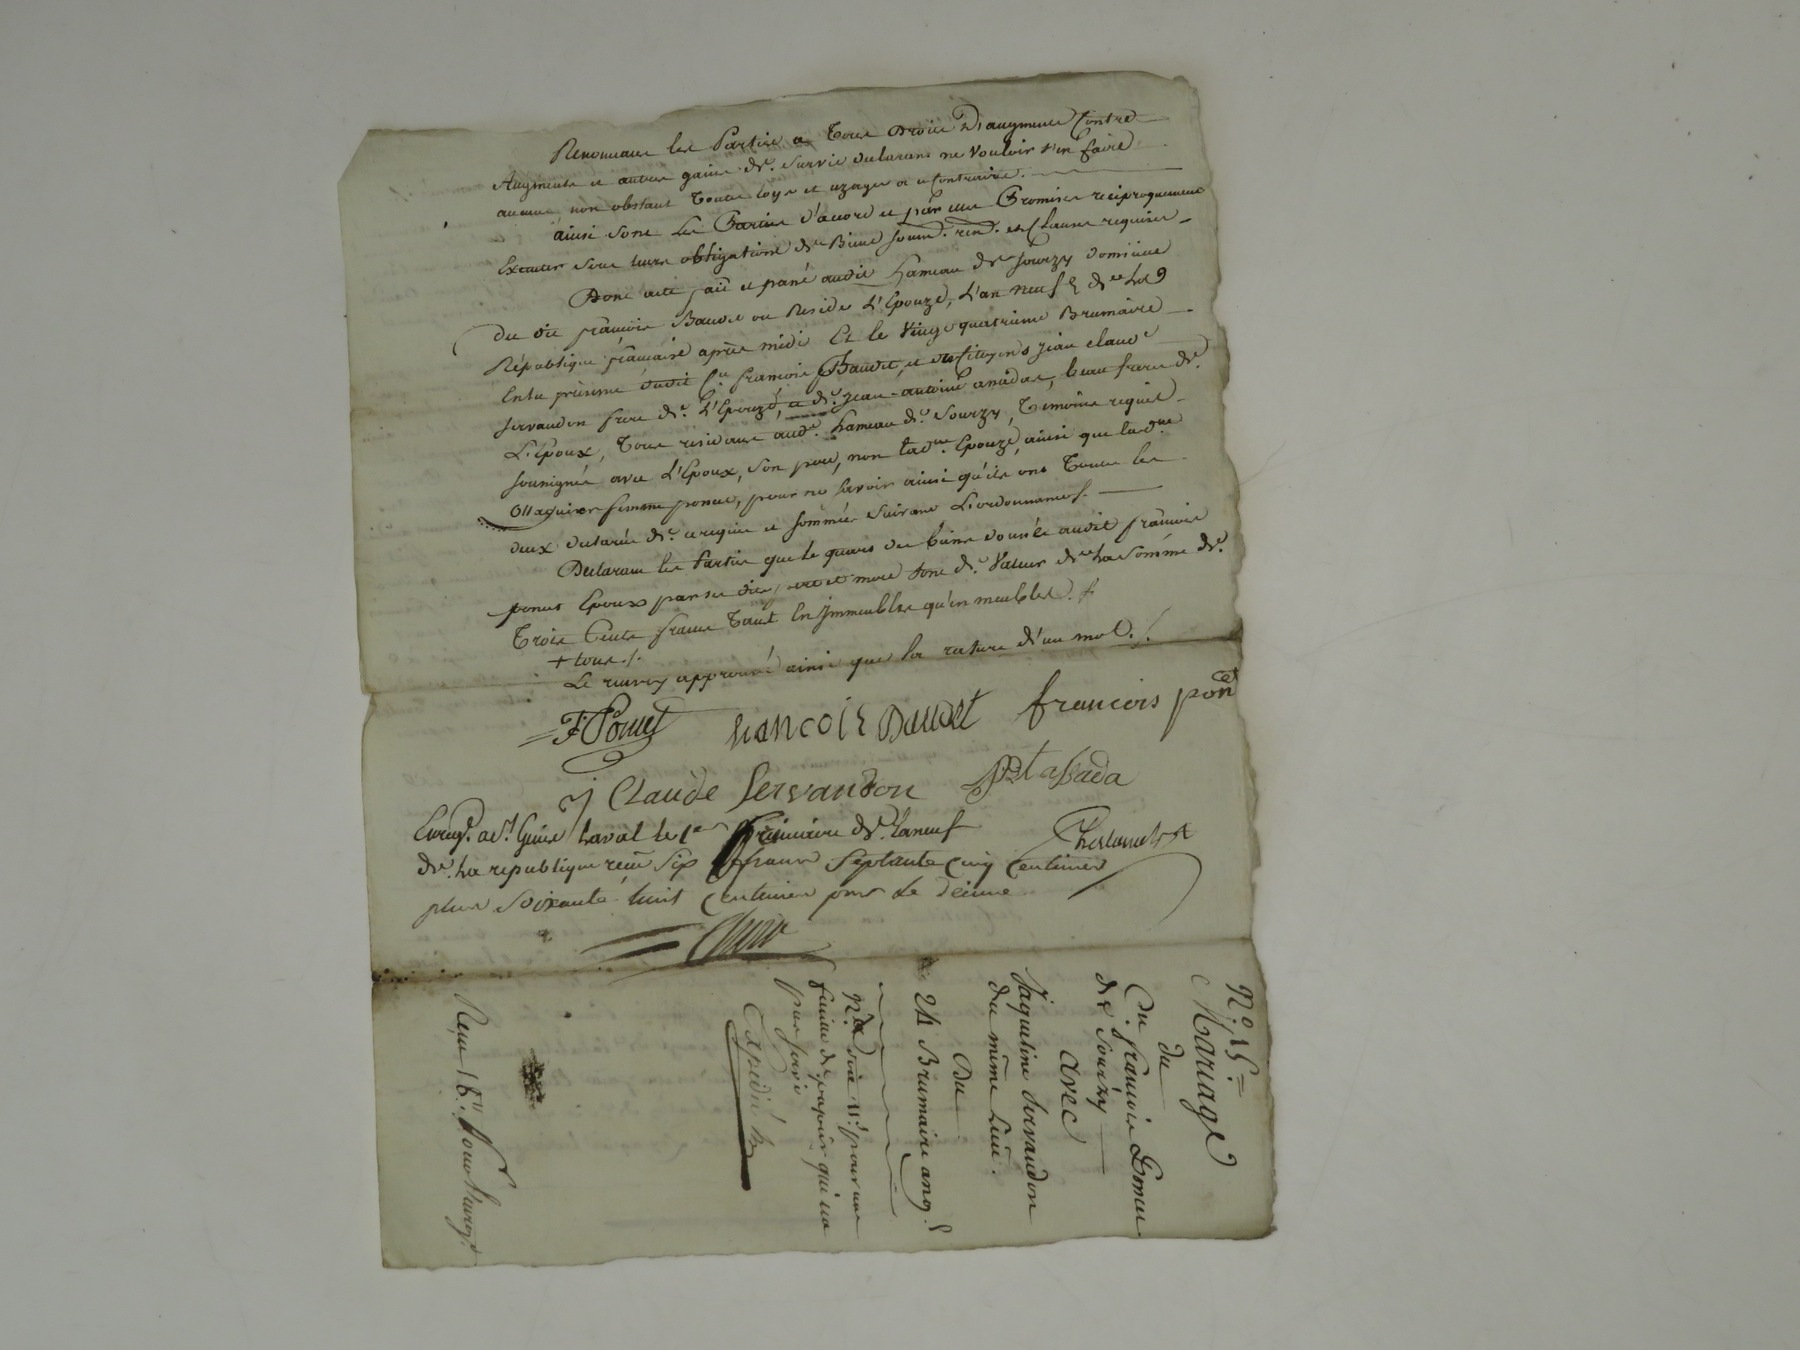 Renonceant les Parties a tous Droits d'augment Contre
Augments et autres gains de Survie declarans ne Vouloir s'en faire
aucune non obstant Toutes loys et uzages a ce Contraires.
ainsi sont les Parties d'accord et par elles Promises reciproquement
Executer sous leurs obligations de Biens soum. ren. et Clauses requises
Dont acte fait et passé audit hameau de Sourzy domicile
du dit françois Baudet ou Reside L'Epouze, L'an neuf de La
République française après midi Et le Vingt quatrieme Brumaire
En la présence dudit françois Baudet, et des Citoyens jean claude
servandon frere de L'Epouze, et de jean antoine beau frere de
L'Epoux, Tous residans aud. hameau de Sourzy, Temoins requis
soussignés avec L'Epoux, son pere, non lad. Epouze, ainsi que lad.
femme poncet, pour ne savoir ainsi qu'ils ont Toutes les
deux declarées de ce requise et sommées Suivant L'ordonnance.
Declarans les Parties que le quart des biens donnés audit françois
poncet Epoux par ses dits pere et mere sont de Valeur de La Somme de
Trois Cents francs Tant En Immeubles qu'en meubles. +
+ tous./.
Le renvoy approuvé ainsi que la rature d'un mot./.
F Poncet francois Baudet francois poncet
J Claude Servandon
Enreg. a St Genis Laval le 1er frimaire de L'an neuf
de La republique reçu six francs Septante Cinq Centimes
plus Soixante huit Centimes pour le décime
N° 15
Mariage
du
Cn. françois Poncet
de Sourzy
avec
Jaqueline Servandon
du même Lieu.
Du
24 Brumaire an 9
Nta doit 11s pour une
feuille de papier qui n'a
pas servi
Expedié